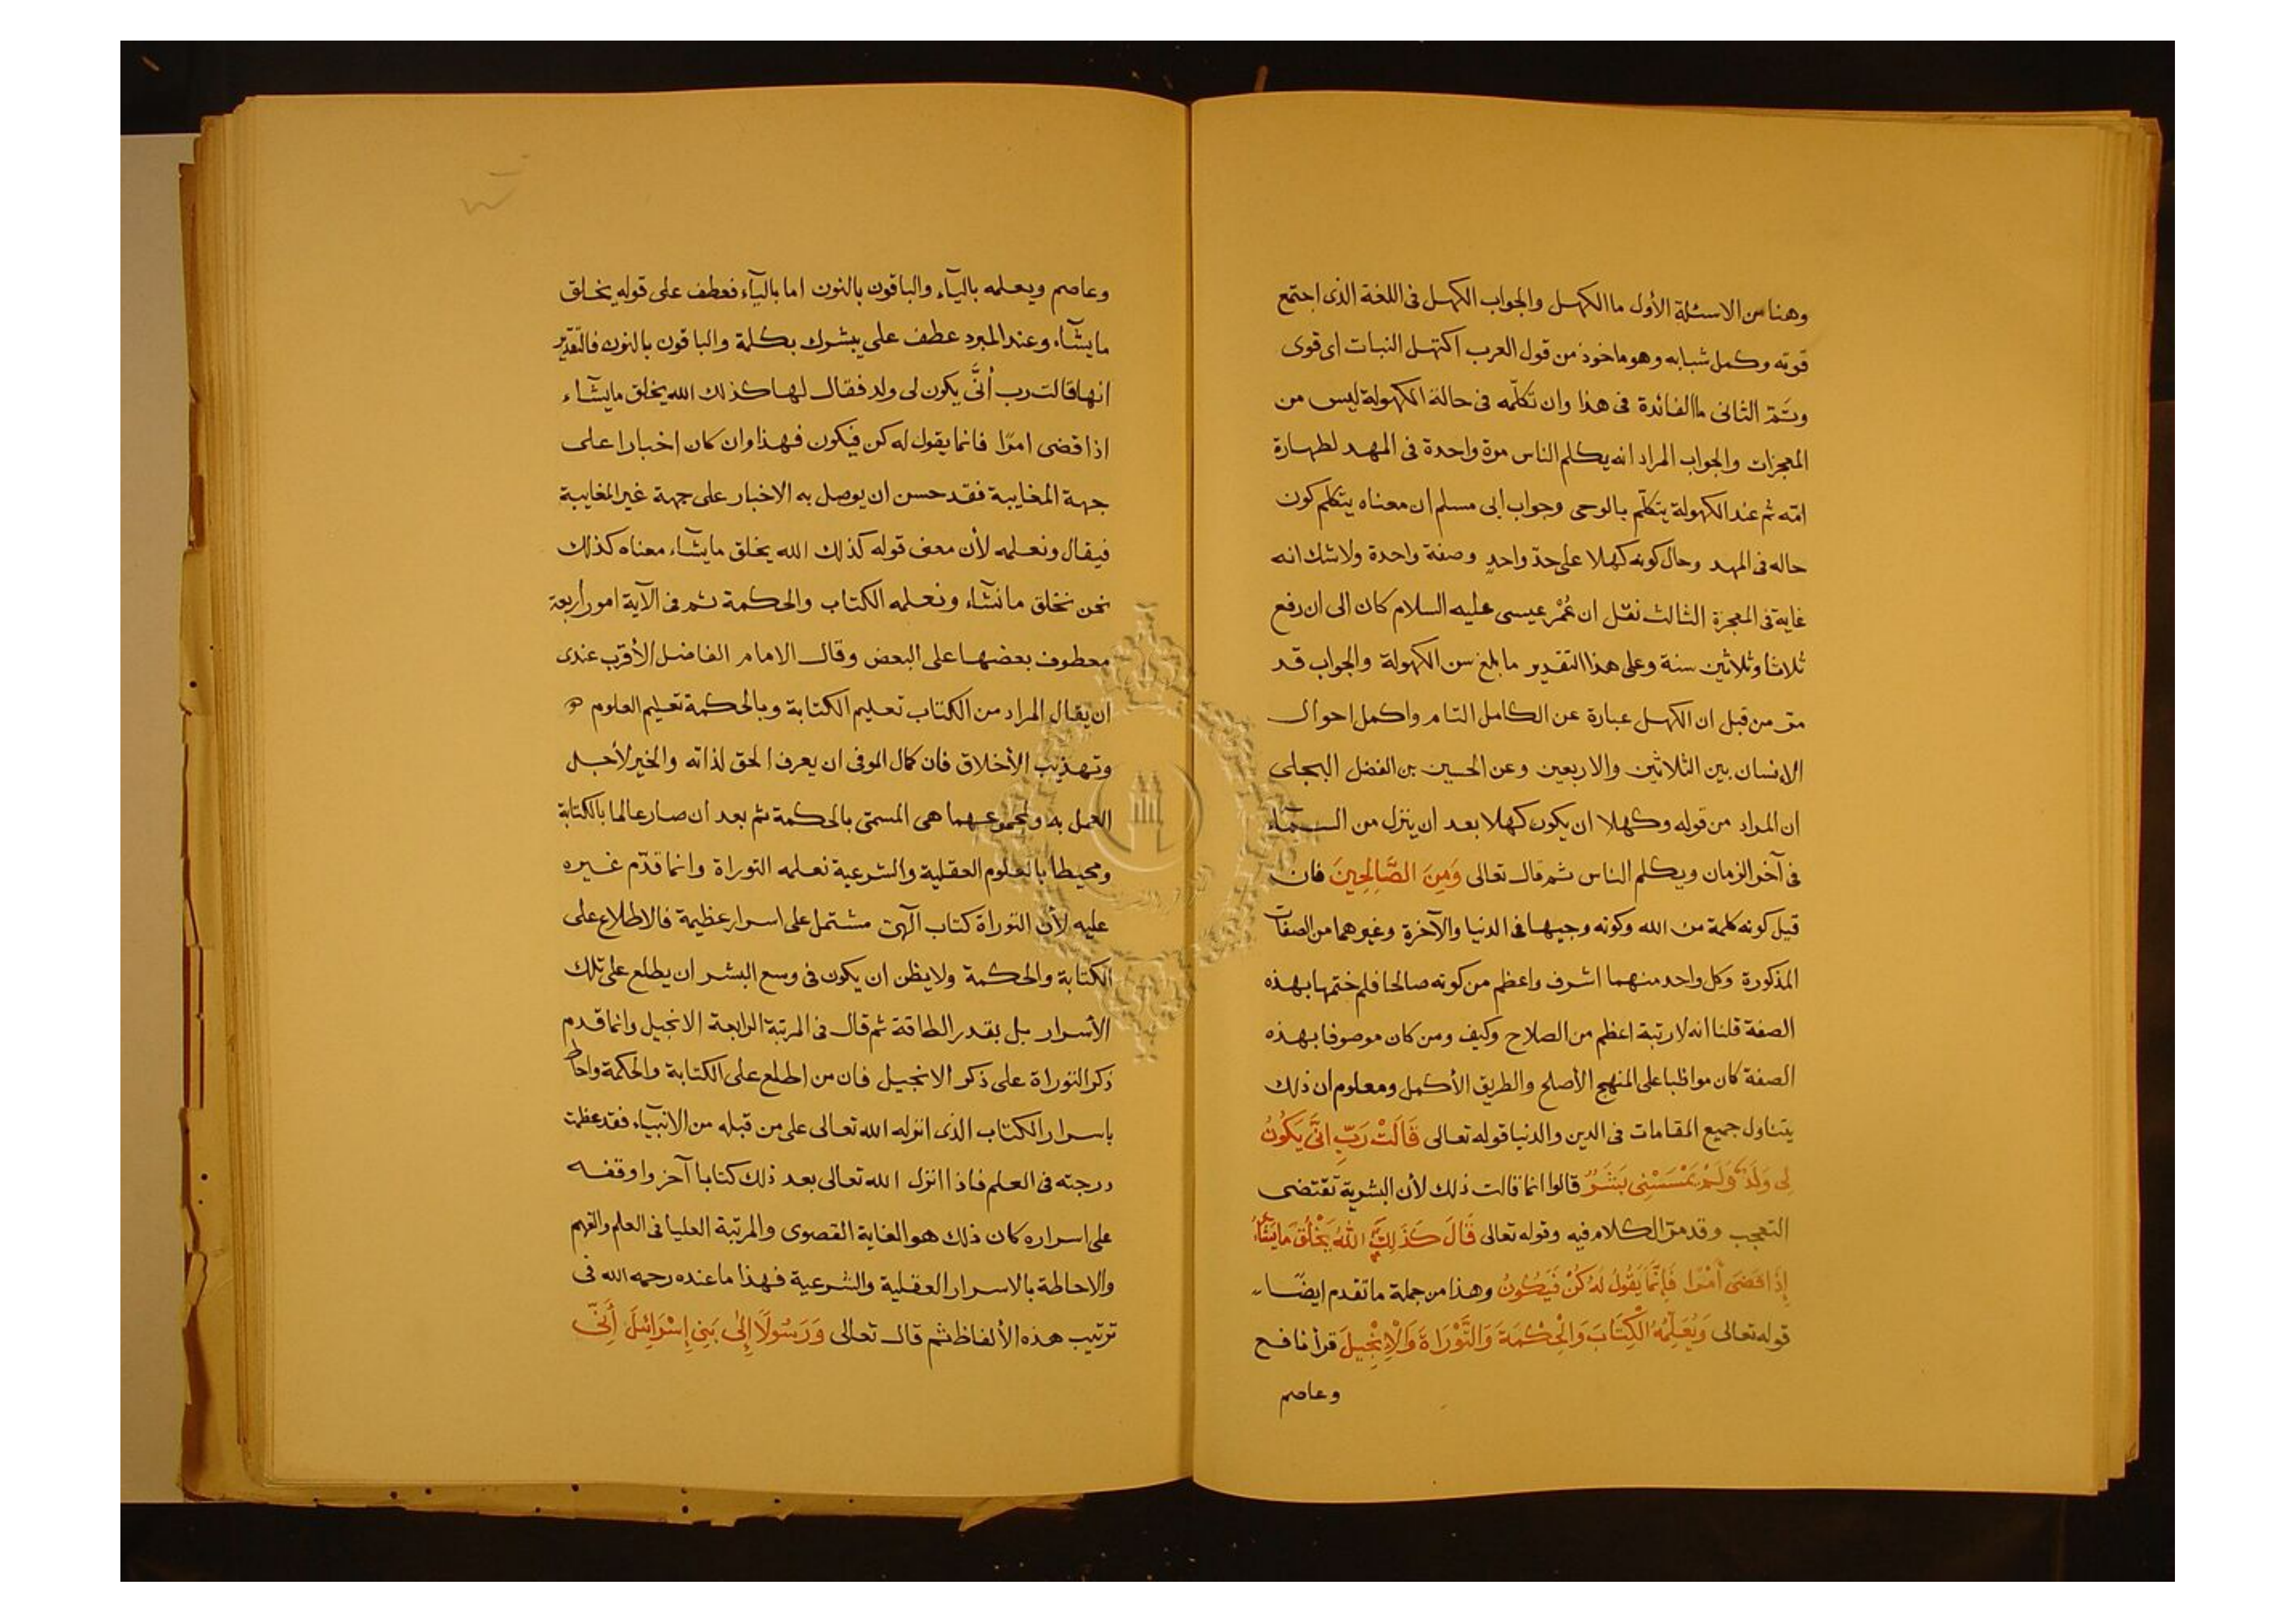 وهنا من الاسئلة الأول ما الكهل والجواب الكهل فى اللغة الذى اجتمع
قوته وكمل شبابه وهو ماخوذ من قول العرب اكتهل النبات اى قوى
وتمّ الثانى ما الفائدة فى هذا وان تكلّمه فى حالة الكهولة ليس من
المعجزات والجواب المراد انه يكلم الناس مرة واحدة فى المهد لطهارة
امّه ثم عند الكهولة يتكلّم بالوحى وجواب ابى مسلم ان معناه يتكلم كون
حاله فى المهد وحال كونه كهلا على حدّ واحدٍ وصفة واحدة ولا شك انه
غاية فى المعجزة الثالث نقل ان عُمْر عيسى عليه السلام كان الى ان رفع
ثلاثا وثلاثين سنة وعلى هذا التقدير ما بلغ سن الكهولة والجواب قد
مرّ من قبل ان الكهل عبارة عن الكامل التام واكمل احوال
الانسان بين الثلاثين والاربعين وعن الحسين بن الفضل البجلى
ان المراد من قوله وكهلا ان يكون كهلا بعد ان ينزل من السمآء
فى آخر الزمان ويكلم الناس ثم قال تعالى وَمِنَ الصَّالِحِينَ فان
قيل كونه كلمة من الله وكونه وجيها فى الدنيا والآخرة وغيرهما من الصفات
المذكورة وكل واحد منهما اشرف واعظم من كونه صالحا فلم ختمها بهذه
الصفة قلنا انه لا رتبة اعظم من الصلاح وكيف ومن كان موصوفا بهذه
الصفة كان مواظبا على المنهج الأصلح والطريق الأكمل ومعلوم ان ذلك
يتناول جميع المقامات فى الدين والدنيا قوله تعالى قَالَتْ رَبِّ انَّى يَكُونُ
لِى وَلَدٌ وَلَمْ يَمْسَسْنِى بَشَرٌ قالوا انما قالت ذلك لأن البشرية تقتضى
التعجب وقد مرّ الكلام فيه وقوله تعالى قَالَ كَذَلِكِ اللهُ يَخْلُقُ مَا يَشَآءُ
إِذَا قَضَى أَمْرًا فَإِنَّمَا يَقُولُ لَهُ كُنْ فَيَكُونُ وهذا من جملة ما تقدم ايضًا
قوله تعالى وَيُعَلِّمُهُ الْكِتَابَ وَالْحِكْمَةَ وَالتَّوْرَاةَ وَالْإِنْجِيلَ قرأ نافع
وعاصم
وعاصم ويعلمه باليآء والباقون بالنون اما باليآء فعطف على قوله يخلق
ما يشآء وعند المبرد عطف على يبشرك بكلمة والباقون بالنون فالتقدير
انها قالت رب أنَّى يكون لى ولد فقال لها كذلك الله يخلق ما يشآء
اذا قضى امرًا فانما يقول له كن فيكون فهذا وان كان اخبارا على
جهة المغايبة فقد حسن ان يوصل به الاخبار على جهة غير المغايبة
فيقال ونعلمه لأن معنى قوله كذلك الله يخلق ما يشآء معناه كذلك
نحن نخلق ما نشآء ونعلمه الكتاب والحكمة ثم فى الآية امور أربعة
معطوف بعضها على البعض وقال الامام الفاضل الأقرب عندى
ان يقال المراد من الكتاب تعليم الكتابة وبالحكمة تعليم العلوم
وتهذيب الأخلاق فان كمال الموفى ان يعرف الحق لذاته والخير لأجل
العمل به ومجموعهما هى المسمّى بالحكمة ثم بعد ان صار عالما بالكتابة
ومحيطا بالعلوم العقلية والشرعية نعلمه التوراة وانما قدّم غيره
عليه لأن التوراة كتاب آلهىّ مشتمل على اسرار عظيمة فالاطلاع على
الكتابة والحكمة ولا يظن ان يكون فى وسع البشر ان يطلع على تلك
الأسرار بل بقدر الطاقة ثم قال فى المرتبة الرابعة الانجيل وانما قدم
ذكر التوراة على ذكر الانجيل فان من اطلع على الكتابة والحكمة واحاط
باسرار الكتاب الذى انزله الله تعالى على من قبله من الانبيآء فقد عظمت
درجته فى العلم فاذا انزل الله تعالى بعد ذلك كتابا آخر واوقفه
على اسراره كان ذلك هو الغاية القصوى والمرتبة العليا فى العلم والفهم
والاحاطة بالاسرار العقلية والشرعية فهذا ما عنده رحمه الله فى
ترتيب هذه الألفاظ ثم قال تعالى وَرَسُولًا إِلَى بَنِى إِسْرَائِلَ أَنِّى